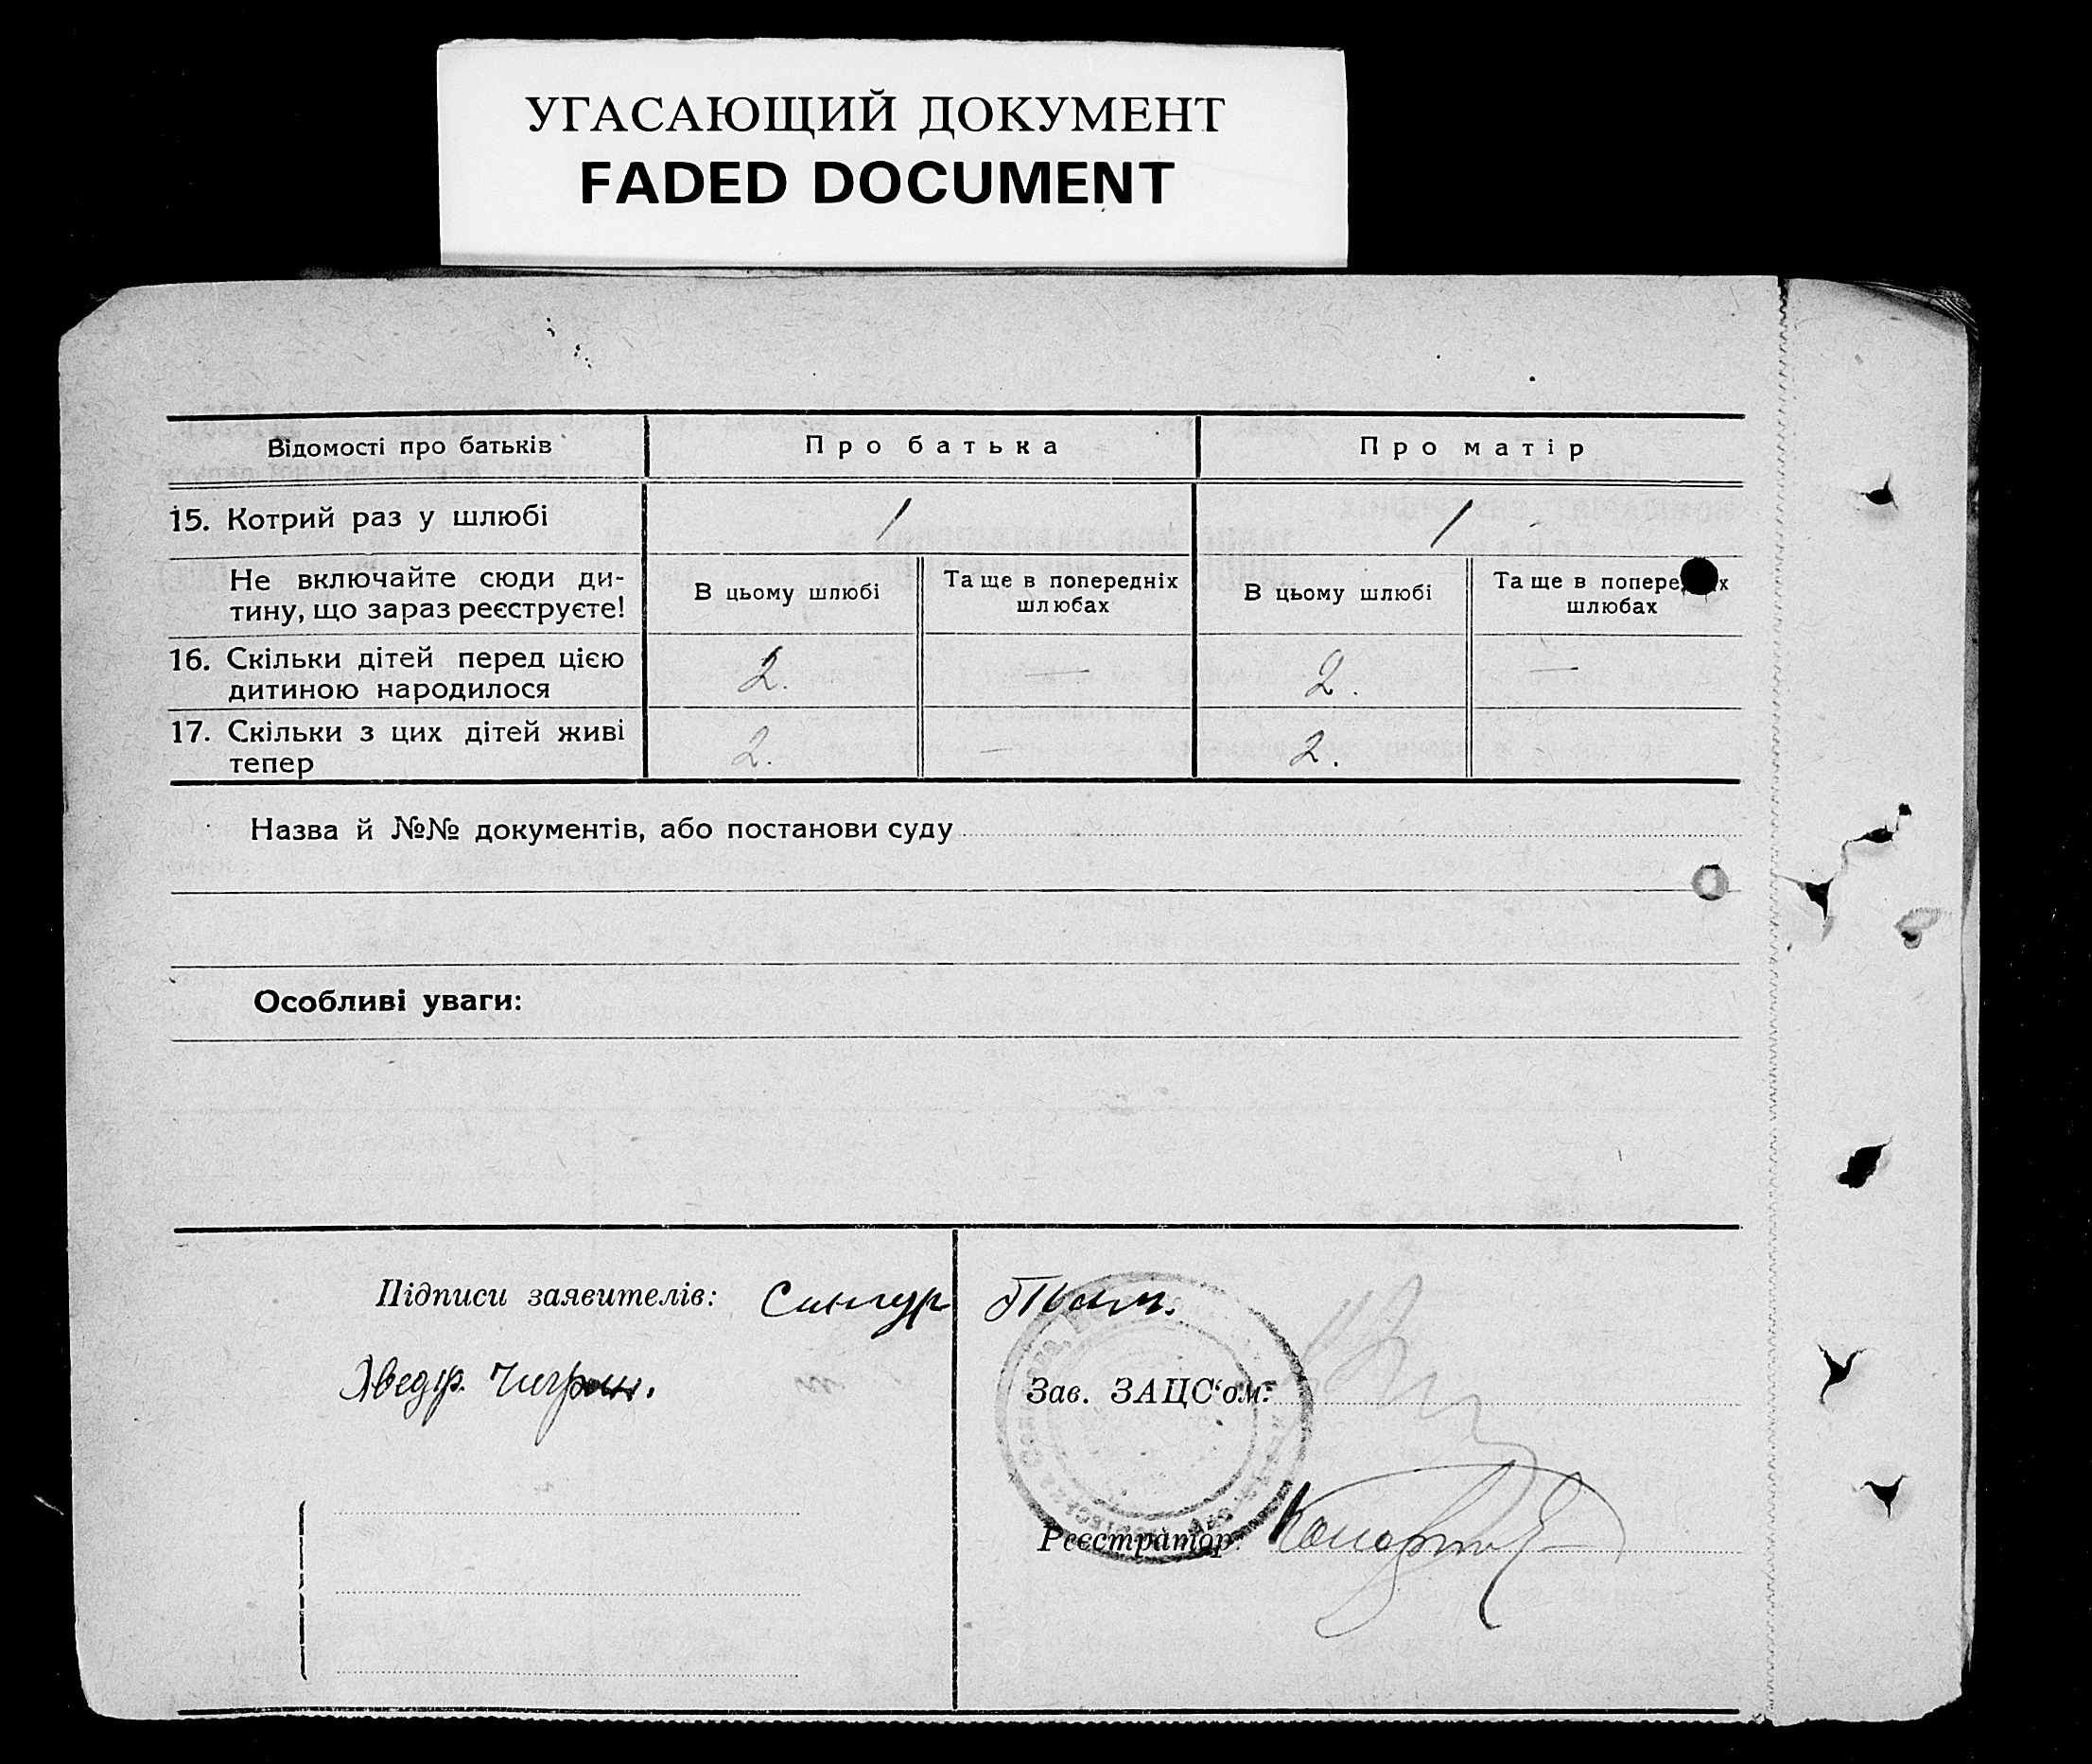 УГАСАЮЩИЙ ДОКУМЕНТ
FADED DOCUMENT
Відомості про батьків
Про батька
Про матір
15. Котрий раз у шлюбі
1
1
Не включайте сюди ди-
тину, що зараз реєструєте!
В цьому шлюбі
Та ще в попередніх
шлюбах
В цьому шлюбі
Та ще в попередніх
шлюбах
16. Скільки дітей перед цією
дитиною народилося
2.
—
2.
—
17. Скільки з цих дітей живі
тепер
2.
—
2.
Назва й №№ документів, або постанови суду
Особливі уваги:
Підписи заявителів: Сингур
Зав. ЗАЦС‘ом:
Реєстратор: